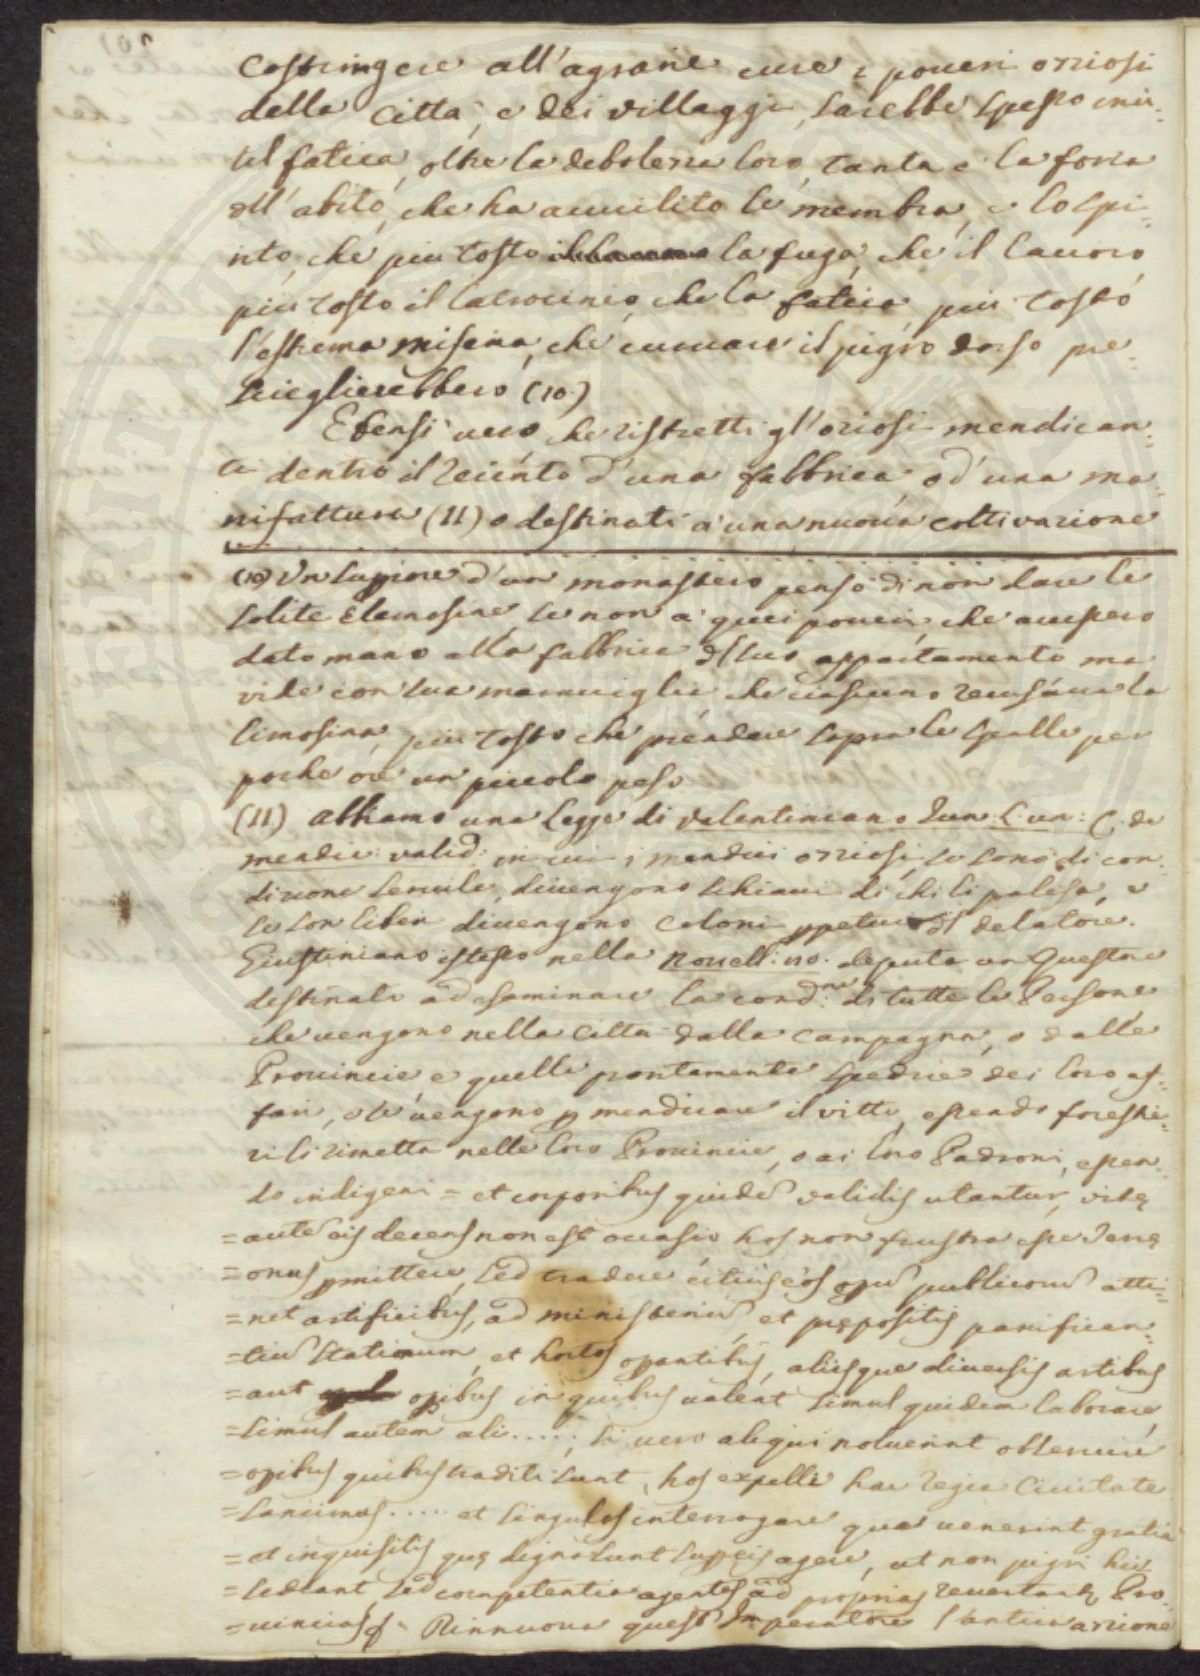 Costringere all'agrarie cure i poveri oziosi
della Città, e dei villaggi, sarebbe spesso inu=
til fatica, oltre la debolezza loro, tanta è la forza
dll'abito, che ha avvilito le membra, e lo spi=
rito, che più tosto la fuga, che il lavoro
più tosto il latrocinio, che la fatica più tosto
l'estrema miseria, che curvare il pigro dorso pre=
sceglierebbero (10)
E bensì vero che ristretti gl'oziosi mendican=
ti dentro il recinto d'una fabbrica, o d'una ma=
nifattura (11) o destinati a una nuova coltivazione
(10) Un suppiore d'un monastero pensò di non dare le
solite elemosine, se non a quei poveri, che avessero
dato mano alla fabbrica dl suo appartamento, ma
vide con sua maraviglia, che ciascuno recusava la
limosina, più tosto che prendere sopra le spalle per
poche ore un piccolo peso
(11) abbiamo una Legge di Valentiniano Iun: L: un: C. de
mendic: valid: in cui i mendici oziosi, se sono di con=
dizione servile, divengono schiavi di chi li palesa, e
se son liberi divengono coloni ppetui dl delatore.
Giustiniano istesso nella Novell: 80. deputa un Questore
destinato ad esaminare la cond.ne di tutte le Persone
che vengono nella città dalla campagna, o dalle
Provincie e quelle prontamente spedire dei loro af=
fari, o se vengono p mendicare il vitto, essendo forestie=
ri li rimetta nelle loro Provincie, o ai loro Padroni, essen=
do indigeni = et corporibus quidē validis utantur, vitę
=autē eis decens non est occasio hos non frustra esse Terrę
=onus pmittere, sed tradere citius eos opū publicorū atti=
=net artificibus, ad ministeriū, et prępositis panifican=
=tiū stationum, et hortos opantibus, aliisque diversis artibus
=aut opibus in quibus valeat simul quidem laborare,
=simul autem ali.....; si vero aliqui noluerint observire
=opibus quibus traditi sunt, hos expelli hac regia Civitate
=sancimus..... et singulos interrogare qua venerint gratia
=et inquisitis quę digna sunt sup eis agere, ut non pigri hic
=sedeant, sed competentia agentes ad proprias revertantę Pro=
=vincias Rinnuova questo Imperatore l'antica azione